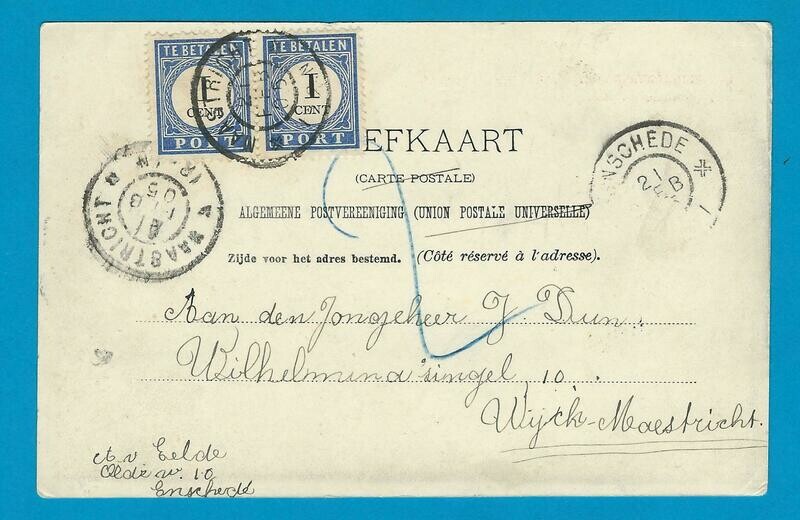 TE BETALEN TE BETALEN
1 CENT 1 CENT
PORT PORT
EFKAART
(CARTE POSTALE)
ALGEMEENE POSTVEREENIGING (UNION POSTALE UNIVERSELLE)
Zijde voor het adres bestemd. (Côté réservé à l'adresse).
MAASTRICHT
NSCHEDE
21
2
Aan den Jongeheer J. Dun.
Wilhelmina singel 10.
Wijck-Maestricht.
A v Eelde
Olde w. 10
Enschede